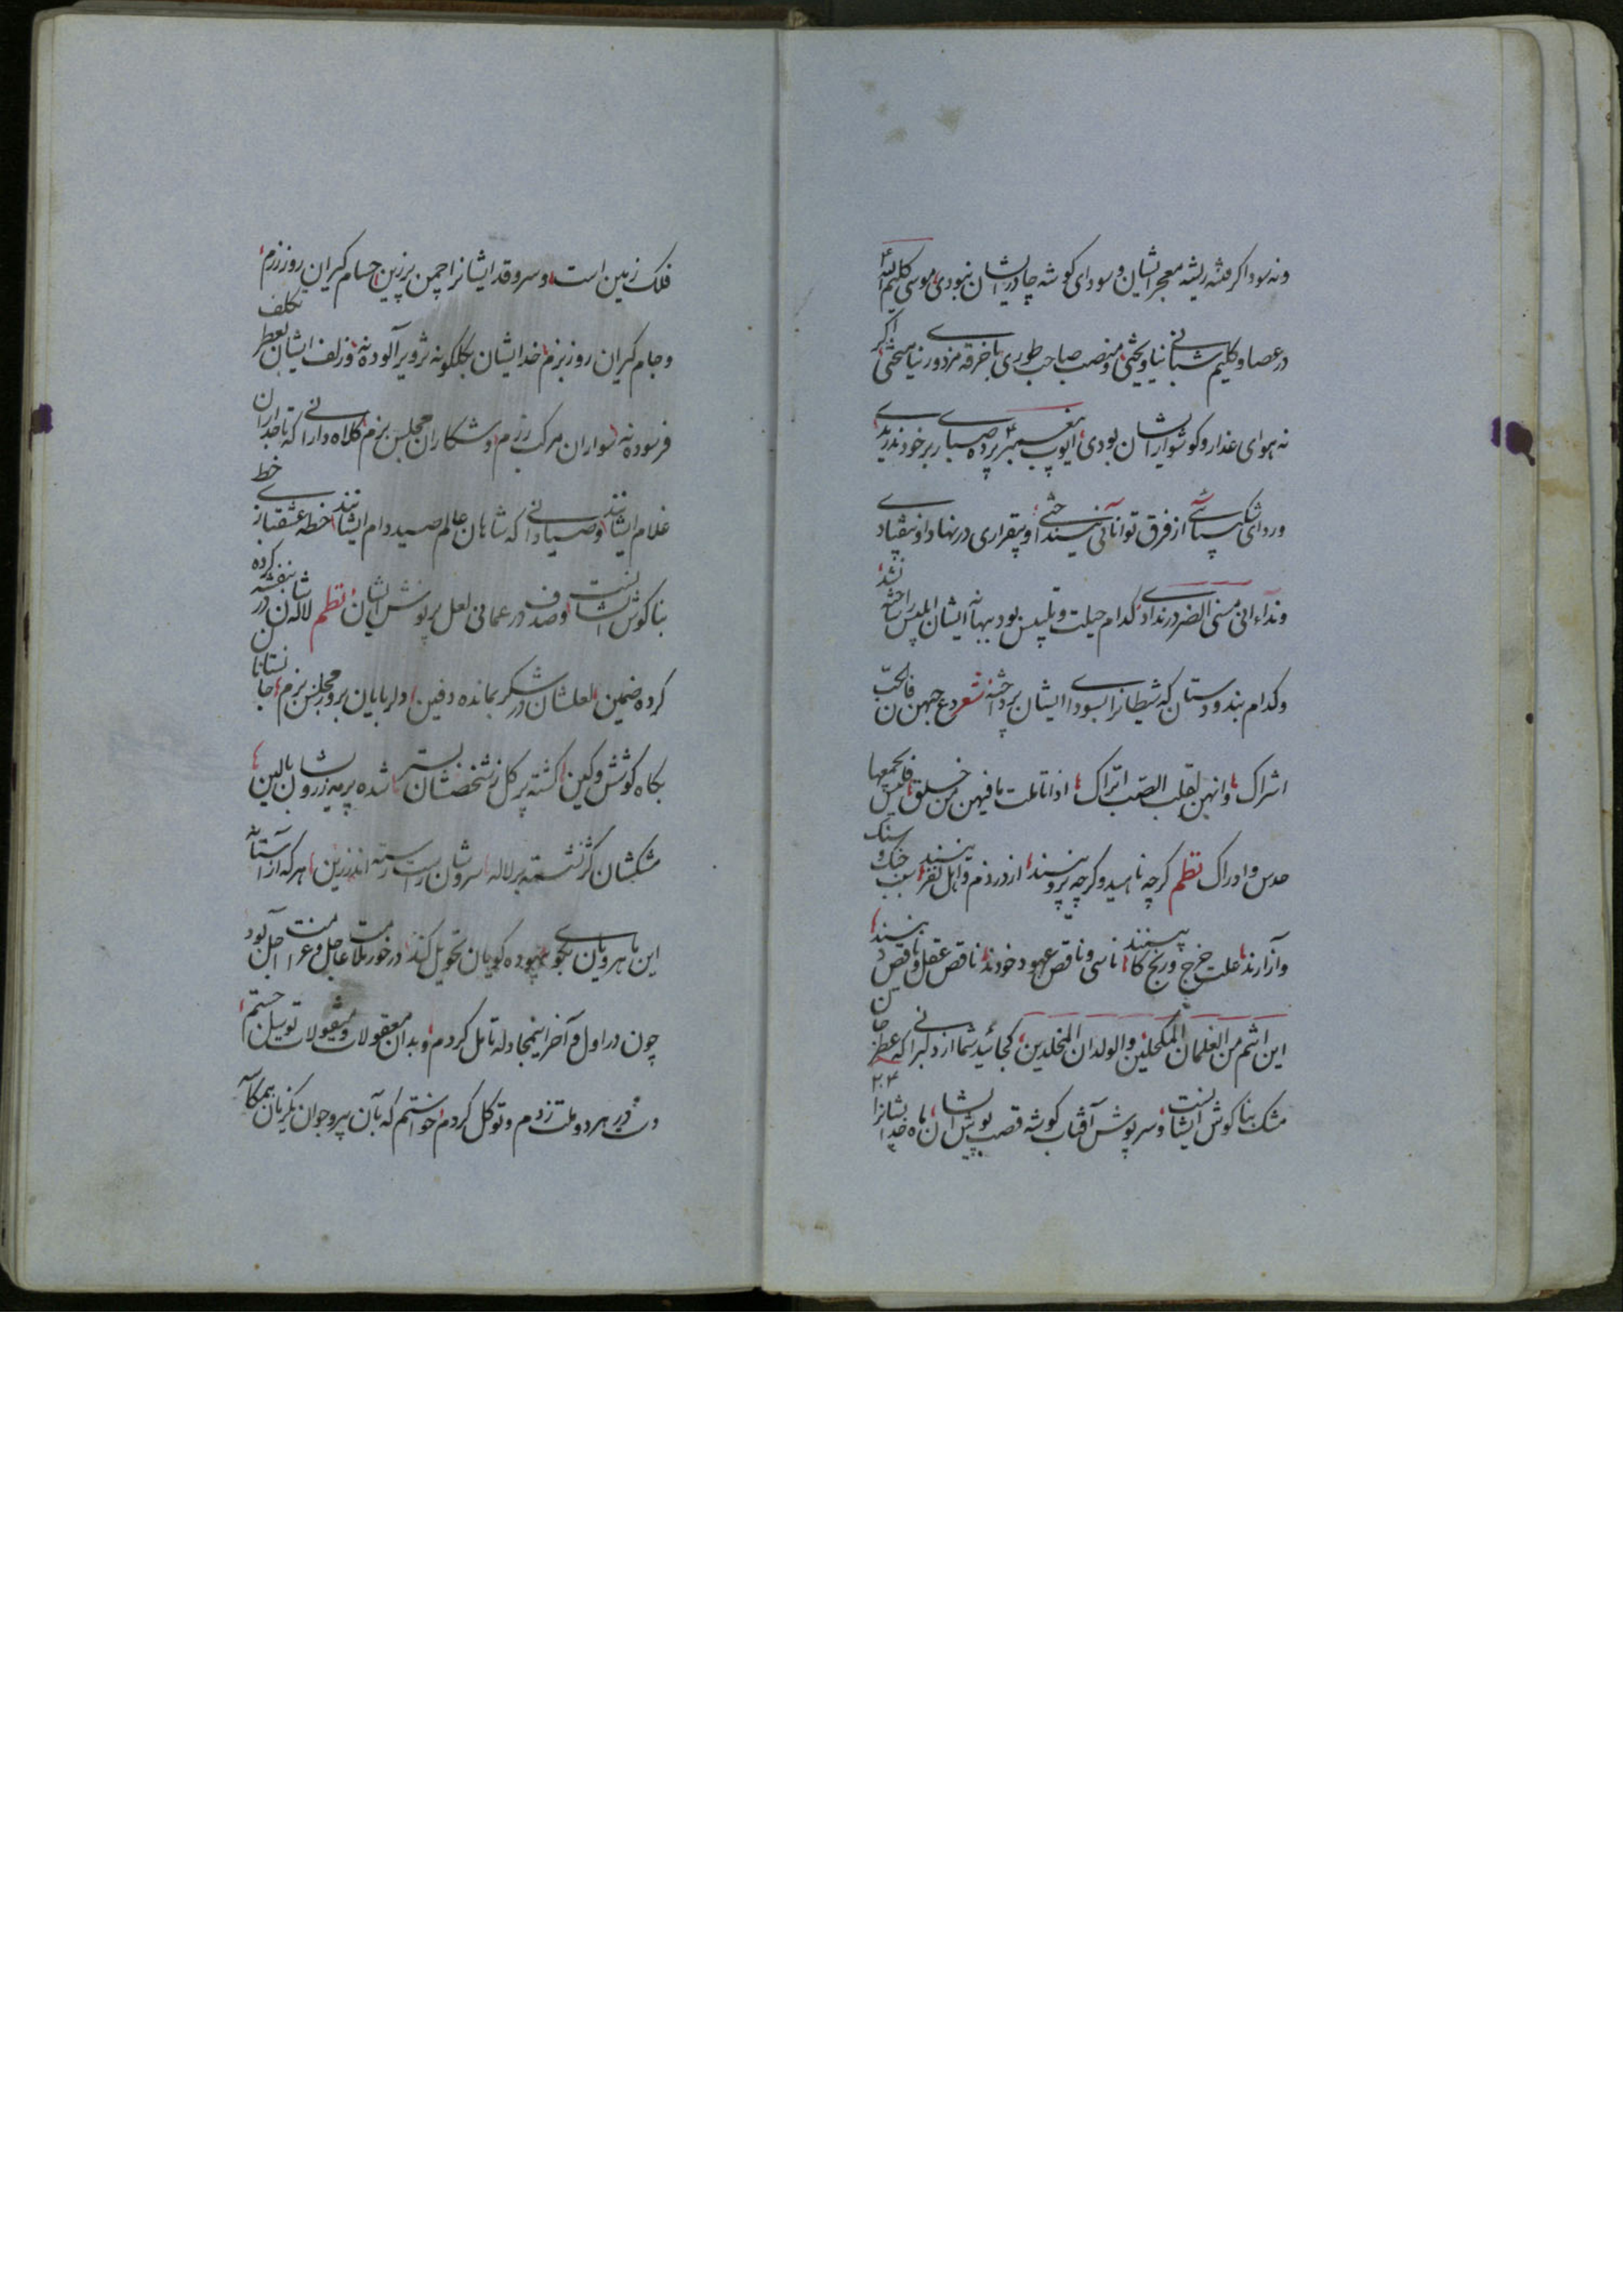 ونه سوداگر فتنه ریشه معجر ایشان و سودای گوشه چادر ایشان نبودی موسی کلیم الله
در عصا و کلیم شبانی نیاویختی و منصب صاحب طوری با خرقه مزدوری نیامیختی اگر
نه هوای عذار و گوشوار ایشان بودی ایوب پیغمبر پرده صابری بر خود ندریدی
و ردای شکیبائی از فرق توانائی نیفکندی و بیقراری در نهاد او نیفتادی
و نداء انی مسنی الضر در ندادی کدام حیلت و تلبیس بود بیهانه ایشان ابلیس را حاشه نشد
و کدام بند و دستان که شیطانرا بسودای ایشان برداشته شعر دع جبهن فالحب
اشراک وانهن لقلب الصب اتراک اذا تاملت ما فیهن من خلق فلیس یجمعها
حدس وادراک نظم گرچه ناهید و گرچه پروینند از در ذم و اهل نفرینند سبب جنگ و
آزارند علت خرج و رنج کابینند ناسی و ناقص عهود خودند ناقص عقل و ناقص دینند
این انتم من الغلمان المکحلین والولدان المخلدین کجائید شما از دلبرانی که عطر
مشک بناگوش ایشانست و سرپوش آفتاب گوشه قصب پوش ایشان ماه خد ایشانرا
فلک زمین است و سرو قد ایشانرا چمن بر زین حسام گیران روز رزم
و جام گیران روز بزم خد ایشان بگلگونه تزویر آلوده نه و زلف ایشان بعطر تکلف
فرسوده نه سواران مرکب رزم و شکاران مجلس بزم کلاه دارانی که تاجداران
غلام ایشانند و صیادانی که شاهان عالم صید دام ایشانند خطه عشقباز خط
بناگوش ایشانست و صدف در عمانی لعل پرنوش ایشان نظم لاله شان در بنفشه کرده
کرده ضمین لعلشان در شکر بمانده دفین دلربایان بروز مجلس بزم جانستانان
بگاه کوشش و کین گشته پر گل ز شخصشان بستر شده پر مه ز رویشان بالین
مشکشان کژ نشسته بر لاله سروشان راست رسته اندر زین هر که از آستانه
این ماهرویان بگوی بیهوده گویان تحویل کند در خور ملامت عاجل و غرامت آجل بود
چون در اول و آخر اینمجادله تامل کردم و بدان معقولات و منقولات توسل جستم
دست در هر دو ملت زدم و توکل کردم خواستم که بآن پیر و جوان بگریبان